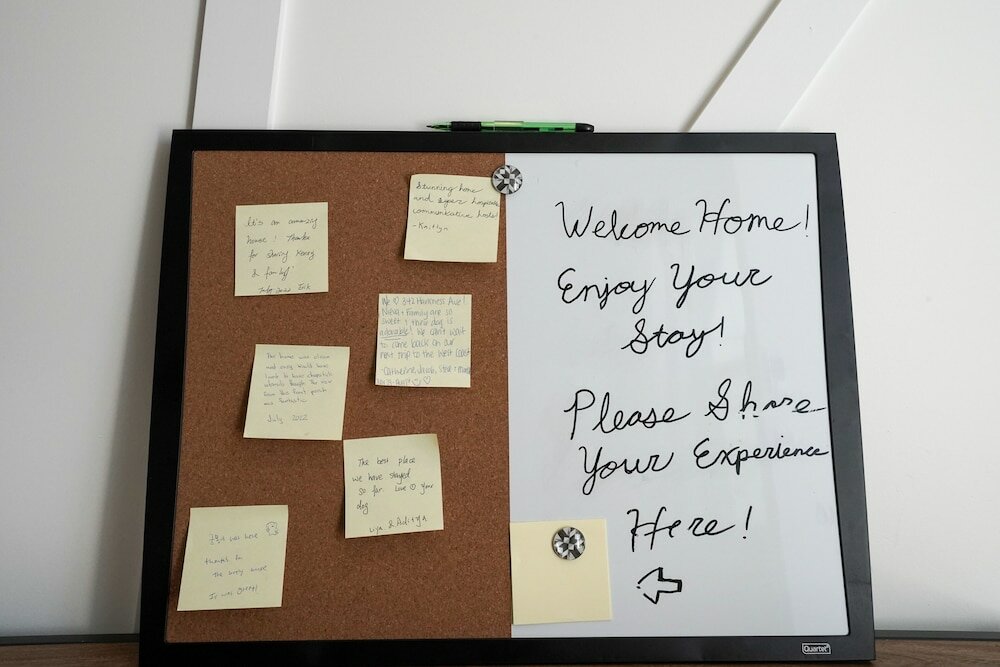 It's an amazing
house! Thanks
for sharing
& family!
Erik
Stunning home
and super
communicative hosts!
-Kaitlyn
We ♡ 342 Harkness Ave!
+ Family are so
sweet & their dog is
adorable! We can't wait
to come back on our
next trip to the West Coast
-Catherine, Jacob,
The home was clean
and cozy would have
the view
from the front porch
was fantastic
July 2022
The best place
we have stayed
so far. Love ☺ your
dog
Liya & Aditya
was here
thanks for
the lovely house
It was great!
Welcome Home!
Enjoy Your
Stay!
Please Share
Your Experience
Here!
Quartet